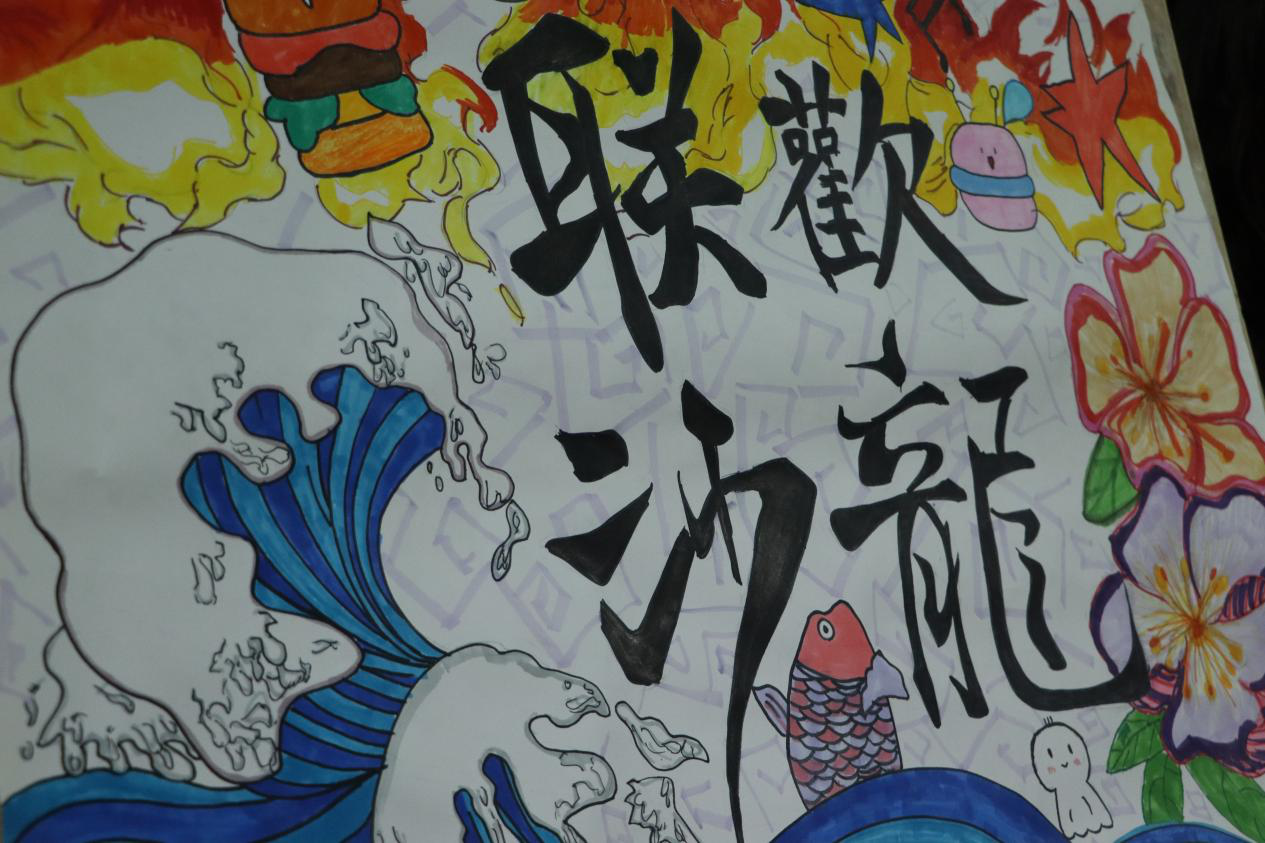 联歡
沙龍